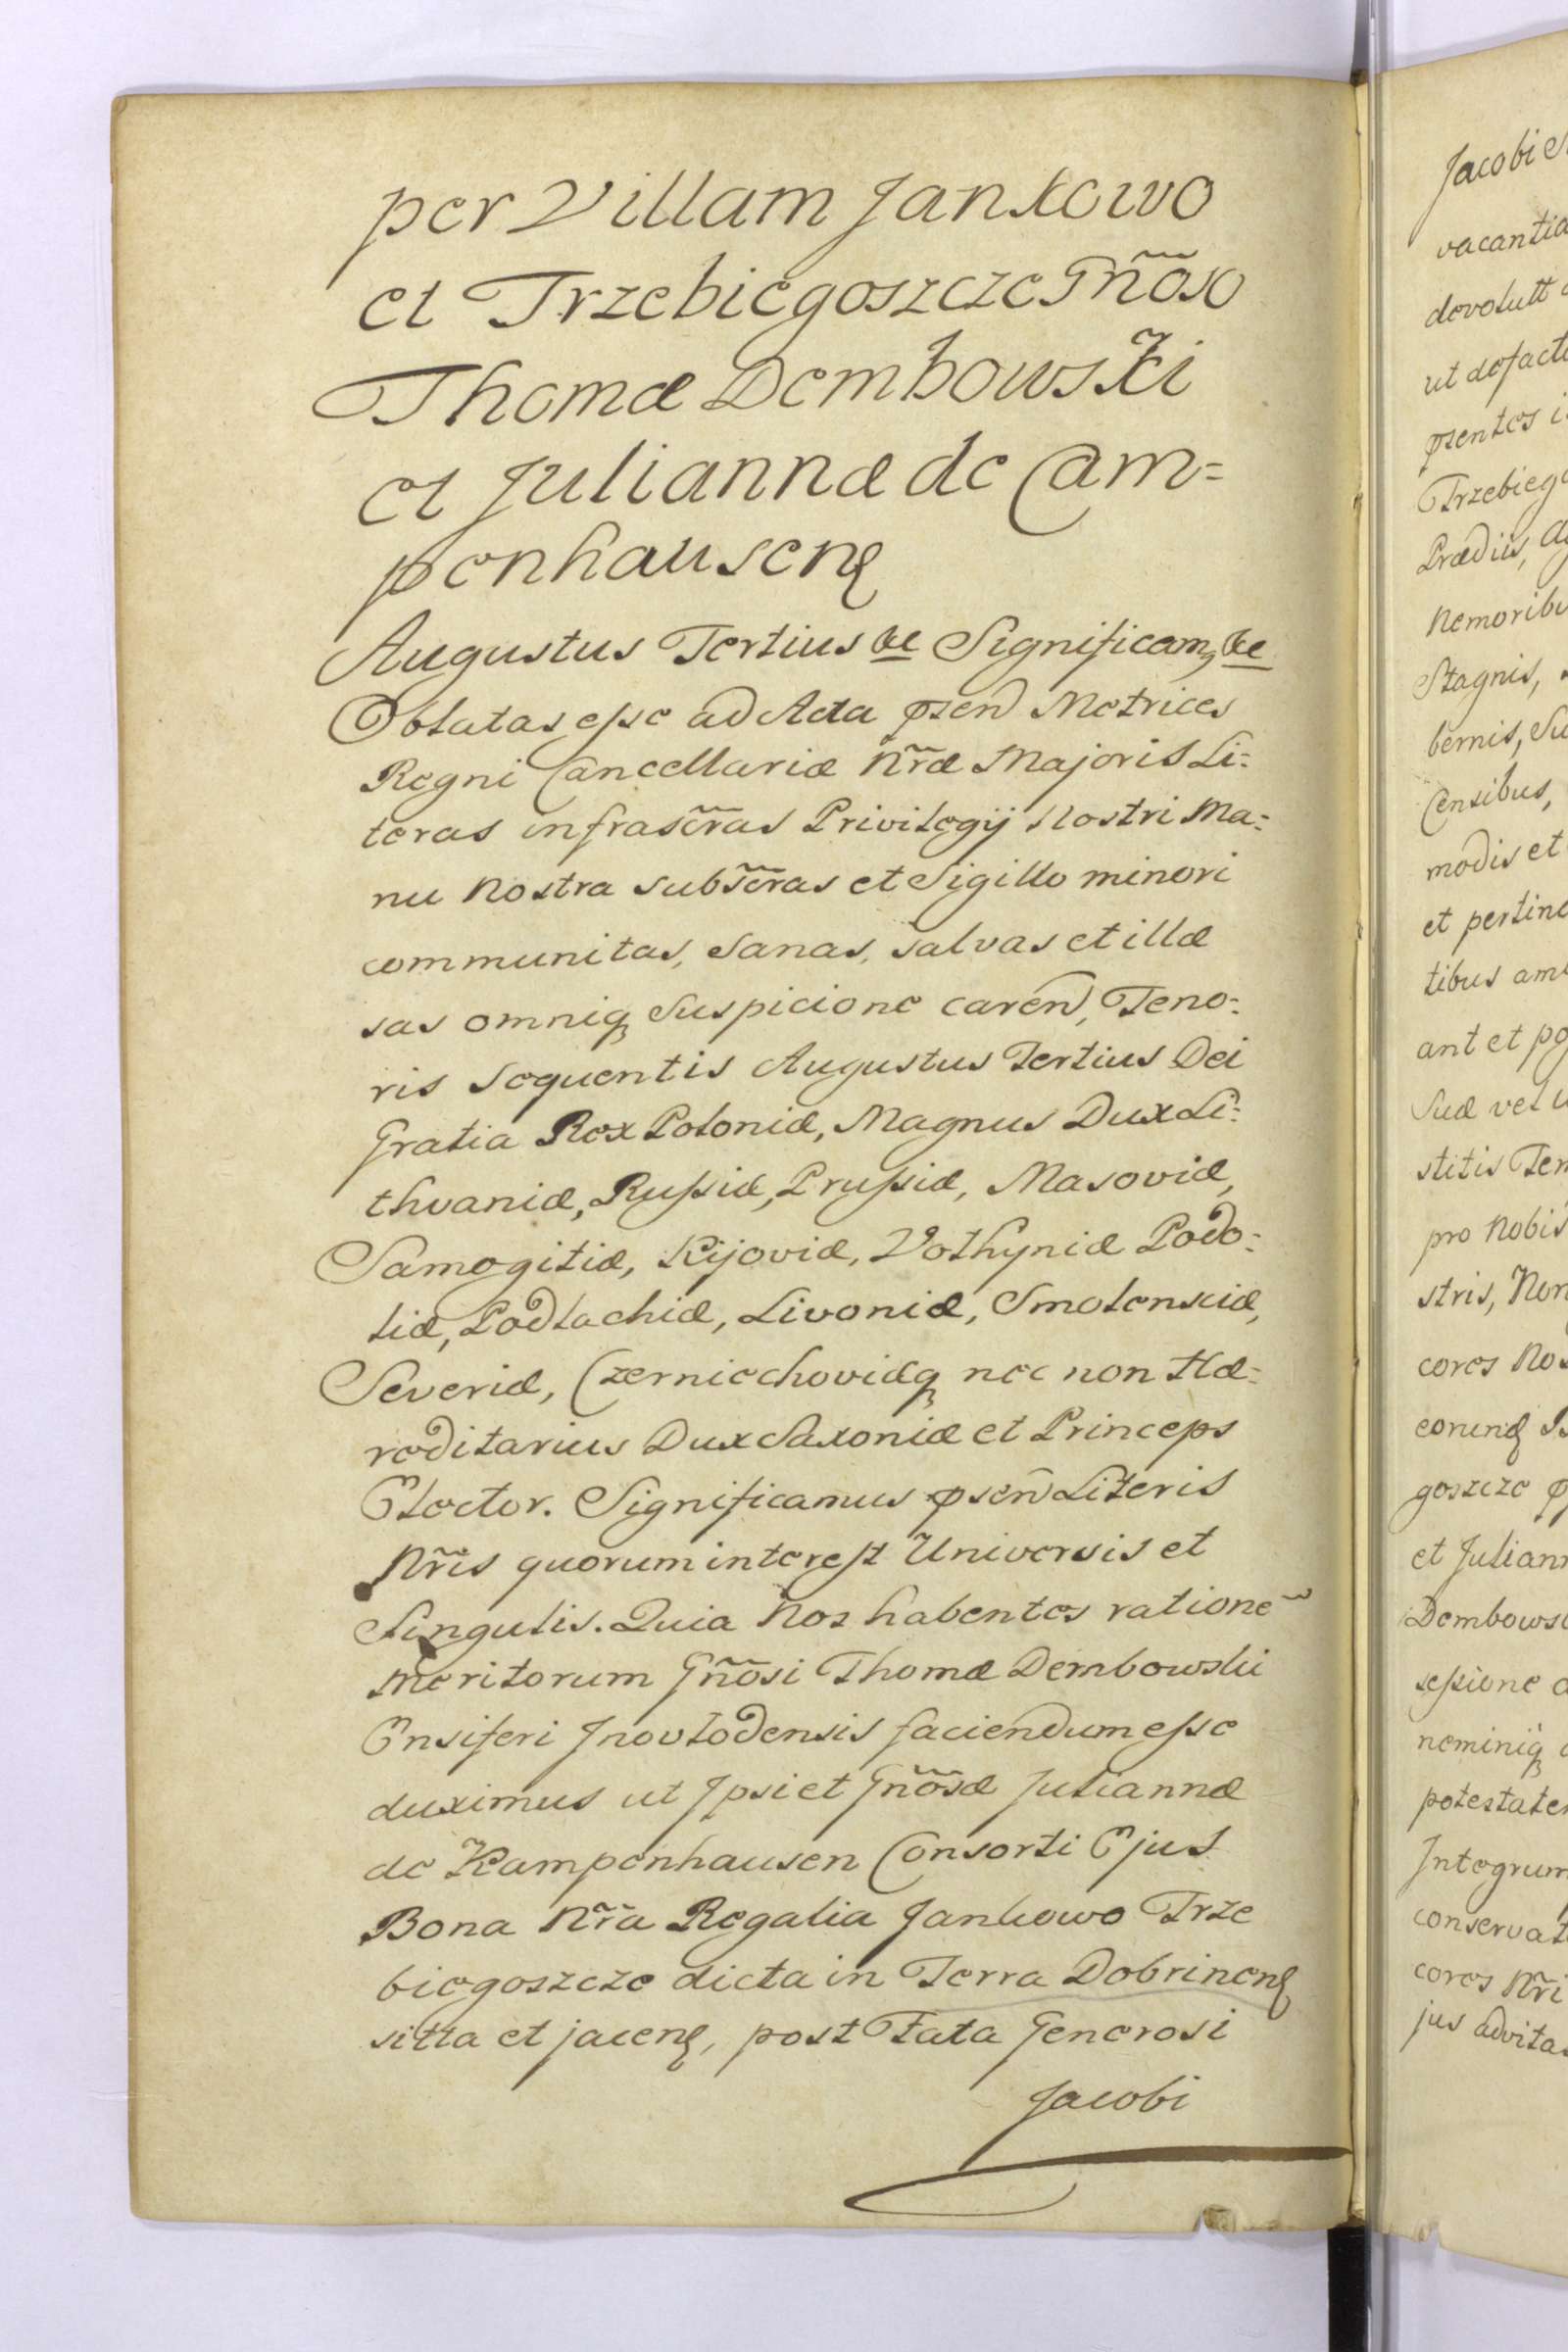 per Villam Jankowo
et Trzebiegoszcze Gñõso
Thomæ Dembowski
et Juliannæ de Cam=
penhausenꝭ
Augustus Tertius &c Significamꝰ &c
Oblatas esse ad Acta pꝛsen Metrices
Regni Cancellariæ Nr̃æ Majoris Li=
teras infrascr̃as Privilegij Nostri Ma=
nu Nostra subscr̃as et Sigillo minori
communitas, Sanas, salvas et illæ
sas omniqꝫ Suspicione caren̄, Teno=
ris Sequentis Augustus Tertius Dei
Gratia Rex Poloniæ, Magnus Dux Li=
thvaniæ, Russiæ, Prussiæ, Masoviæ,
Samogitiæ, Kijoviæ, Volhyniæ Podo=
liæ, Podlachiæ, Livoniæ, Smolensciæ,
Severiæ, Czerniechoviæqꝫ nec non Hæ=
reditarius Dux Saxoniæ et Princeps
Elector. Significamus pꝛsen̄ Literis
Nr̃is quorum interest Universis et
Singulis. Quia Nos habentes rationẽ
Meritorum Gñõsi Thomæ Dembowski
Ensiferi Jnovlodensis faciendum esse
duximus ut Jpsi et Gñõsæ Juliannæ
de Kampenhausen Consorti Ejus
Bona Nr̃a Regalia Jankowo Trze
biegoszcze dicta in Terra Dobrinenꝭ
sitta et jacenꝭ, post Fata Generosi
Jacobi
Jacobi
vacantia
devolutt
ut defact
pꝛsentes
Trzebieg
Prædiis,
Nemoribu
Stagnis,
bernis, Su
Censibus,
modis et
et pertine
tibus am
ant et po
Suæ vel
stitis Ter
pro Nobis
stris, Non
cores No
eorunꝭ
goszcze
et Juliann
Dembows
sessione
neminiqꝫ
potestate
Integrum
conservat
cores Nr̃i
jus advita